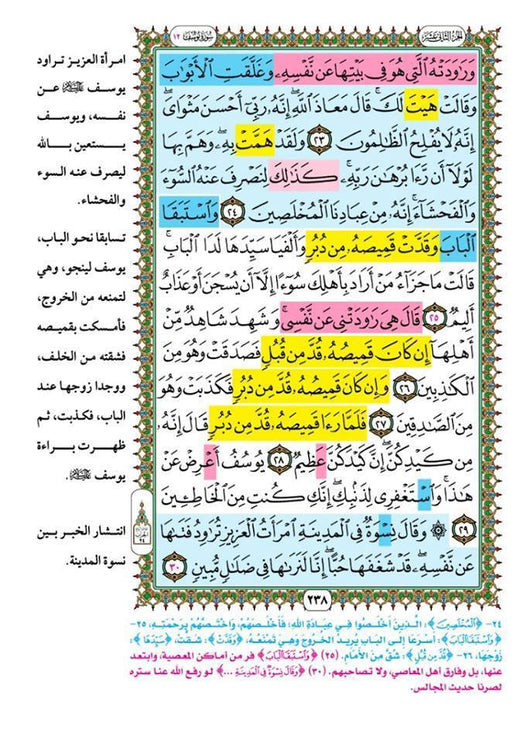 الجزء الثاني عشر
سورة يوسف ١٢
وَرَاوَدَتْهُ الَّتِي هُوَ فِي بَيْتِهَا عَن نَّفْسِهِ وَغَلَّقَتِ الْأَبْوَابَ
وَقَالَتْ هَيْتَ لَكَ قَالَ مَعَاذَ اللَّهِ إِنَّهُ رَبِّي أَحْسَنَ مَثْوَايَ
إِنَّهُ لَا يُفْلِحُ الظَّالِمُونَ ٢٣ وَلَقَدْ هَمَّتْ بِهِ وَهَمَّ بِهَا
لَوْلَا أَن رَّءَا بُرْهَانَ رَبِّهِ كَذَلِكَ لِنَصْرِفَ عَنْهُ السُّوءَ
وَالْفَحْشَاءَ إِنَّهُ مِنْ عِبَادِنَا الْمُخْلَصِينَ ٢٤ وَاسْتَبَقَا
الْبَابَ وَقَدَّتْ قَمِيصَهُ مِن دُبُرٍ وَأَلْفَيَا سَيِّدَهَا لَدَا الْبَابِ
قَالَتْ مَا جَزَاءُ مَنْ أَرَادَ بِأَهْلِكَ سُوءًا إِلَّا أَن يُسْجَنَ أَوْ عَذَابٌ
أَلِيمٌ ٢٥ قَالَ هِيَ رَاوَدَتْنِي عَن نَّفْسِي وَشَهِدَ شَاهِدٌ مِّنْ
أَهْلِهَا إِن كَانَ قَمِيصُهُ قُدَّ مِن قُبُلٍ فَصَدَقَتْ وَهُوَ مِنَ
الْكَاذِبِينَ ٢٦ وَإِن كَانَ قَمِيصُهُ قُدَّ مِن دُبُرٍ فَكَذَبَتْ وَهُوَ
مِنَ الصَّادِقِينَ ٢٧ فَلَمَّا رَءَا قَمِيصَهُ قُدَّ مِن دُبُرٍ قَالَ إِنَّهُ
مِن كَيْدِكُنَّ إِنَّ كَيْدَكُنَّ عَظِيمٌ ٢٨ يُوسُفُ أَعْرِضْ عَنْ
هَذَا وَاسْتَغْفِرِي لِذَنبِكِ إِنَّكِ كُنتِ مِنَ الْخَاطِئِينَ
٢٩ ۞ وَقَالَ نِسْوَةٌ فِي الْمَدِينَةِ امْرَأَتُ الْعَزِيزِ تُرَاوِدُ فَتَاهَا
عَن نَّفْسِهِ قَدْ شَغَفَهَا حُبًّا إِنَّا لَنَرَاهَا فِي ضَلَالٍ مُّبِينٍ ٣٠
٢٣٨
امرأة العزيز تراود
يوسف عليه السلام عن
نفسه، ويوسف
يستعين بالله
ليصرف عنه السوء
والفحشاء.
تسابقا نحو الباب،
يوسف لينجو، وهي
لتمنعه من الخروج،
فأمسكت بقميصه
فشقته من الخلف،
ووجدا زوجها عند
الباب، فكذبت، ثم
ظهرت براءة
يوسف عليه السلام.
انتشار الخبر بين
نسوة المدينة.
٢٤- ﴿الْمُخْلَصِينَ﴾: الَّذِينَ أَخْلَصُوا فِي عِبَادَةِ اللهِ؛ فَأَخْلَصَهُمْ، وَاخْتَصَّهُمْ بِرَحْمَتِهِ، ٢٥-
﴿وَاسْتَبَقَا الْبَابَ﴾: أَسْرَعَا إِلَى البَابِ يُرِيدُ الخُرُوجَ وَهِيَ تَمْنَعُهُ، ﴿وَقَدَّتْ﴾: شَقَّتْ، ﴿سَيِّدَهَا﴾:
زَوْجَهَا، ٢٦- ﴿قُدَّ مِن قُبُلٍ﴾: شُقَّ مِنَ الأَمَامِ. (٢٥) ﴿وَاسْتَبَقَا الْبَابَ﴾ فر من أماكن المعصية، وابتعد
عنها، بل وفارق أهل المعاصي، ولا تصاحبهم. (٣٠) ﴿وَقَالَ نِسْوَةٌ فِي الْمَدِينَةِ ...﴾ لو رفع الله عنا ستره
لصرنا حديث المجالس.